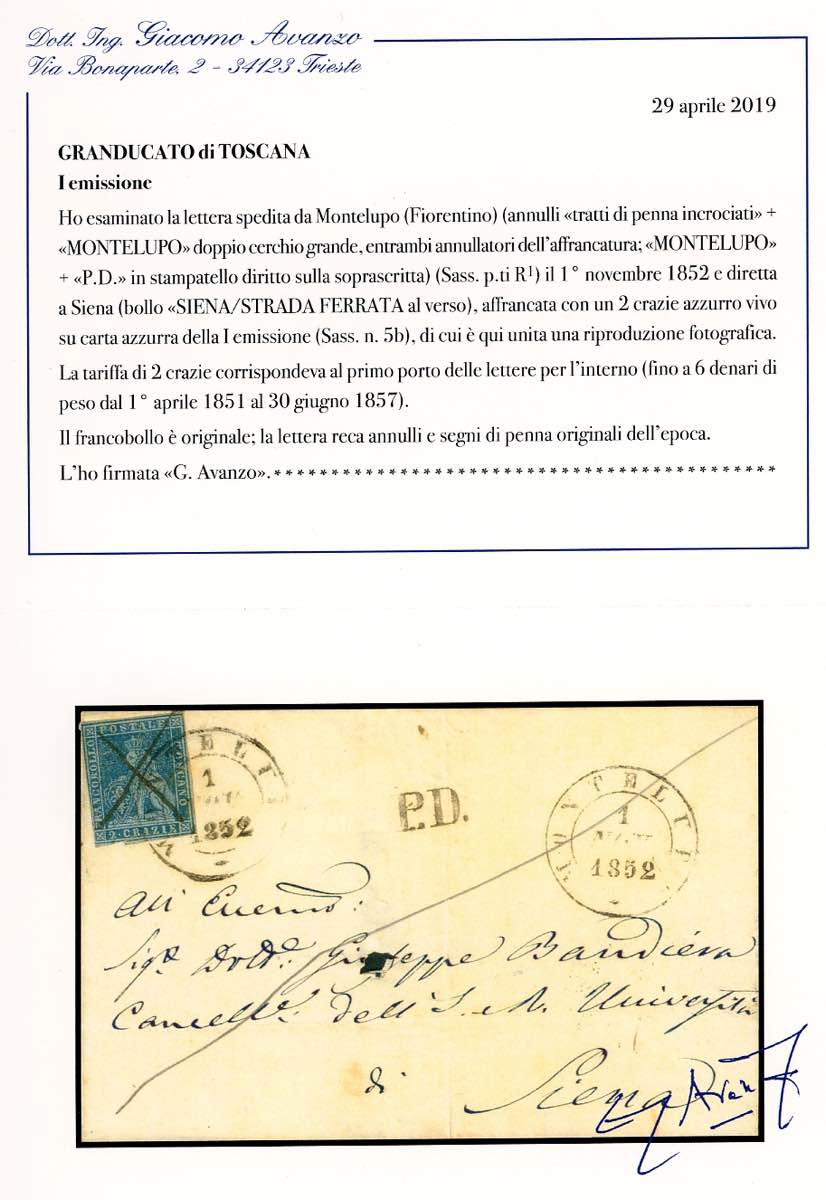 Dott. Ing. Giacomo Avanzo
Via Bonaparte, 2 - 34123 Trieste
29 aprile 2019
GRANDUCATO di TOSCANA
I emissione
Ho esaminato la lettera spedita da Montelupo (Fiorentino) (annulli «tratti di penna incrociati» +
«MONTELUPO» doppio cerchio grande, entrambi annullatori dell’affrancatura; «MONTELUPO»
+ «P.D.» in stampatello diritto sulla soprascritta) (Sass. p.ti R¹) il 1° novembre 1852 e diretta
a Siena (bollo «SIENA/STRADA FERRATA al verso), affrancata con un 2 crazie azzurro vivo
su carta azzurra della I emissione (Sass. n. 5b), di cui è qui unita una riproduzione fotografica.
La tariffa di 2 crazie corrispondeva al primo porto delle lettere per l’interno (fino a 6 denari di
peso dal 1° aprile 1851 al 30 giugno 1857).
Il francobollo è originale; la lettera reca annulli e segni di penna originali dell’epoca.
L’ho firmata «G. Avanzo». * * * * * * * * * * * * * * * * * * * * * * * * * * * * * * * * * * * * * * * * * * * *
FRANCOBOLLO POSTALE TOSCANO
2 CRAZIE
MONTELUPO
1
1852
P.D.
MONTELUPO
1
1852
All'
Sigr. Dottr. Giuseppe Bandiera
Cancellre. dell' I. e R. Università
di
Siena